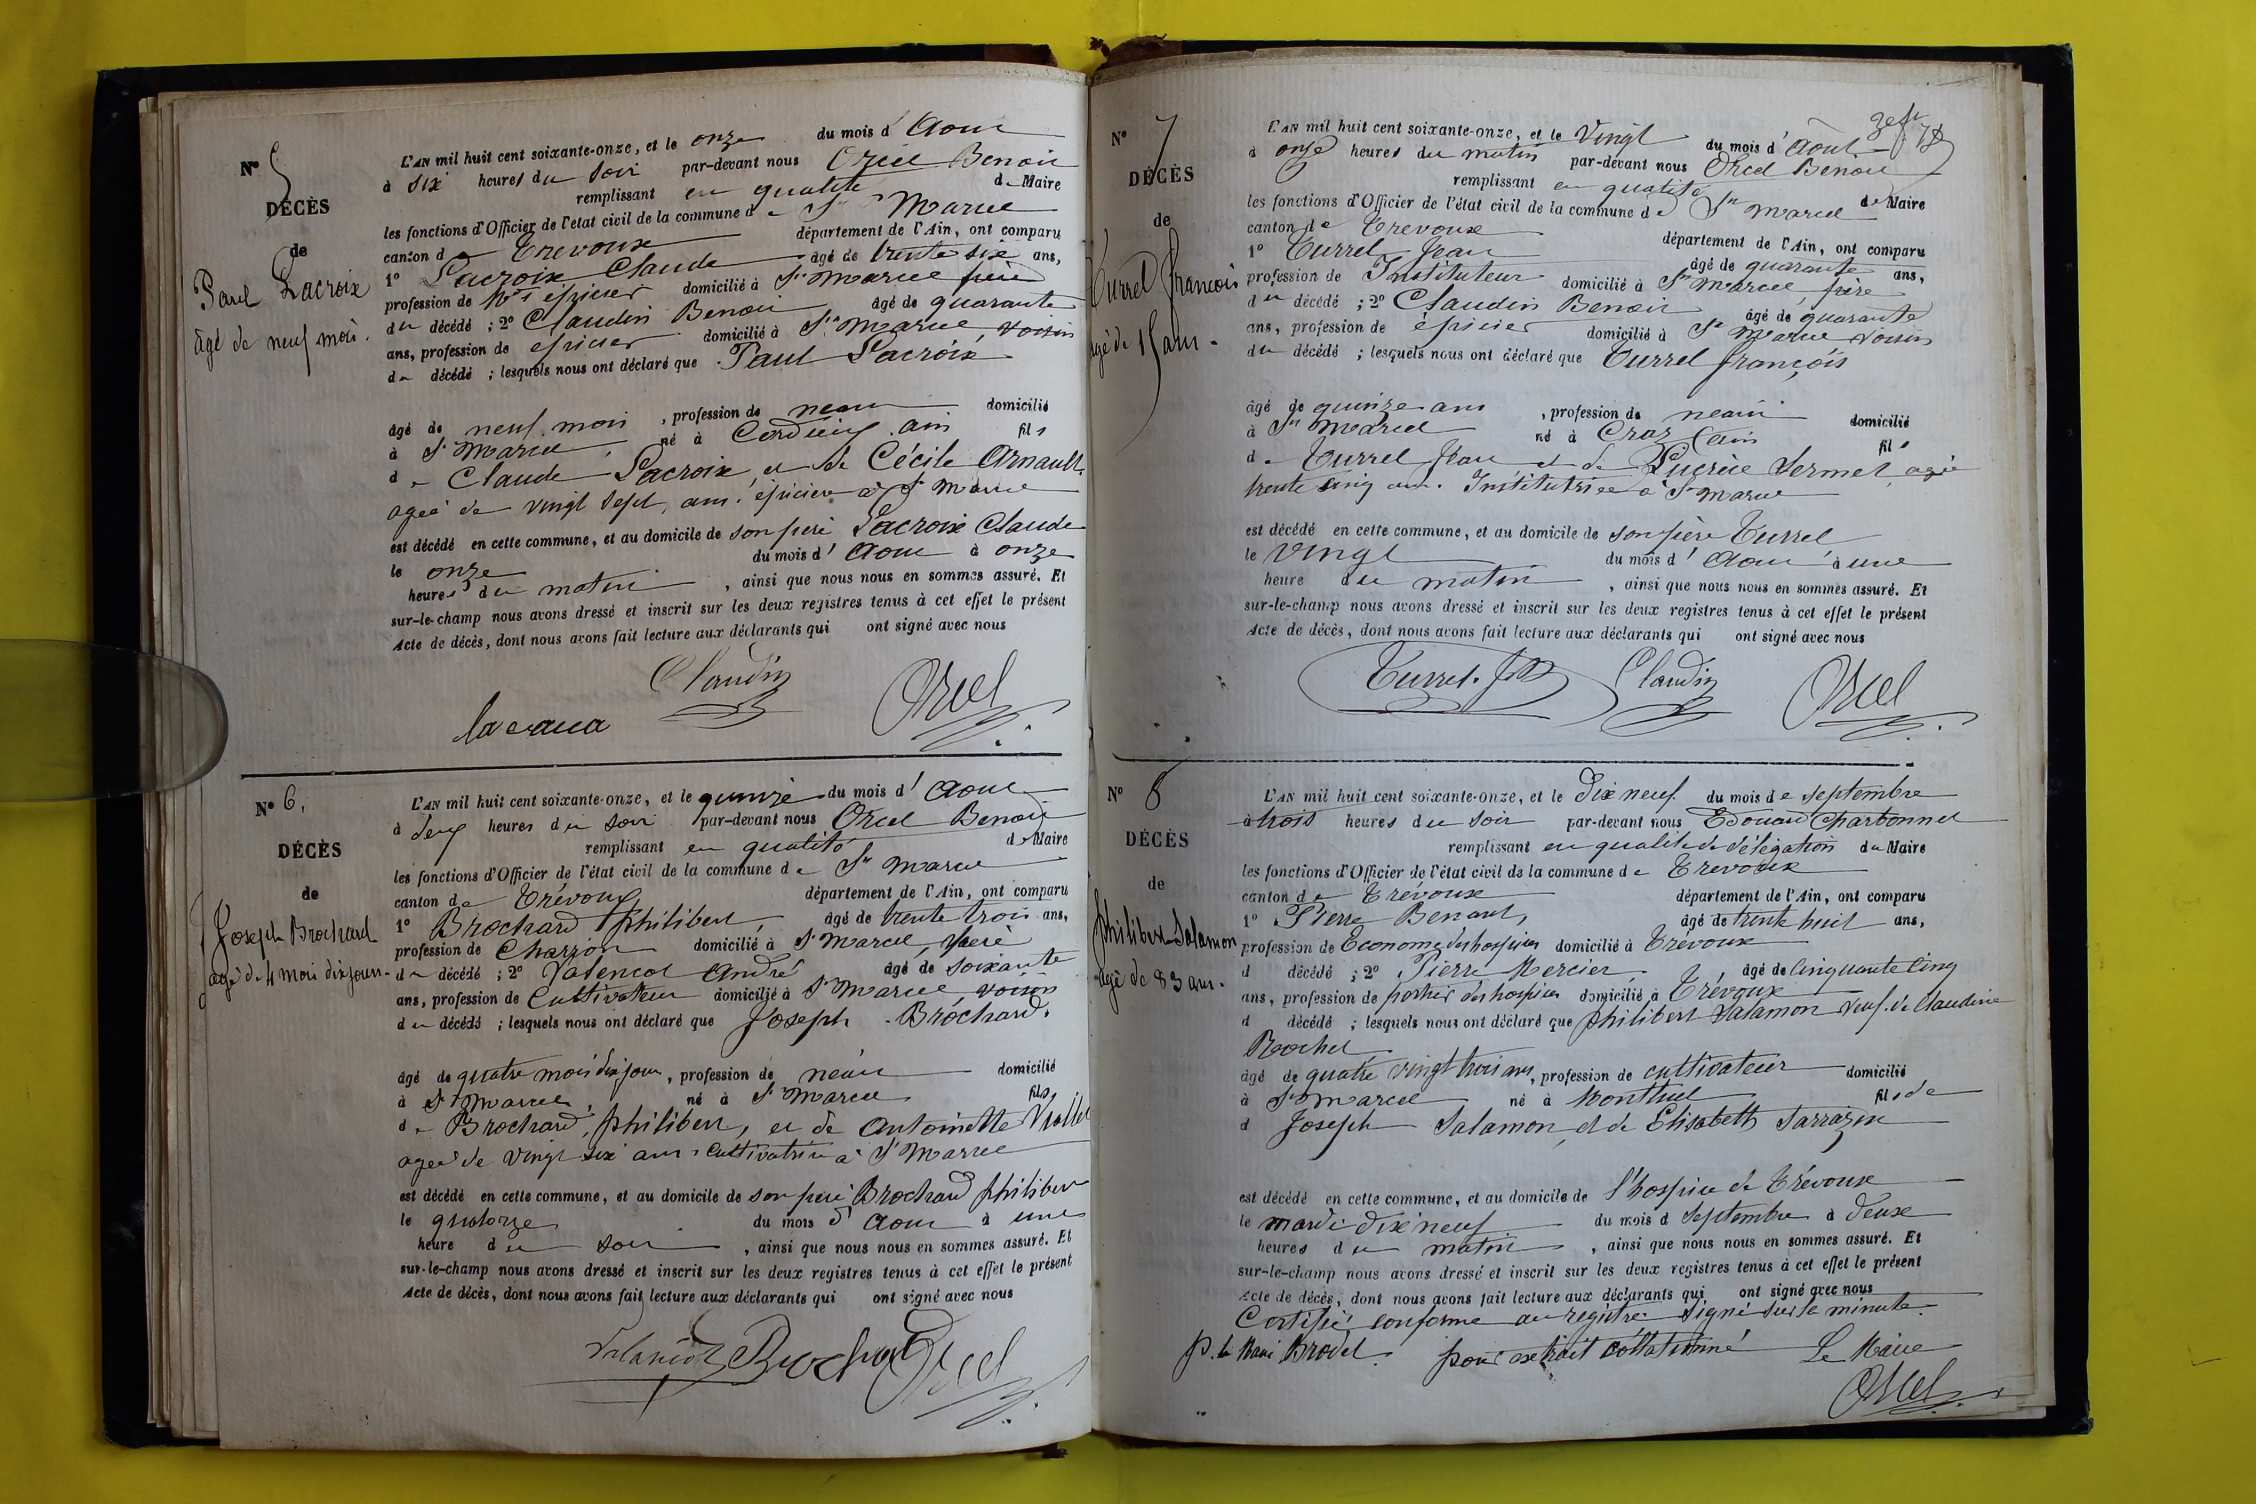 N° 5
DÉCÈS
de
Paul Lacroix
âgé de neuf mois.
L'AN mil huit cent soixante-onze, et le onze du mois d' Aout
à six heures du soir par-devant nous Orcel Benoit
remplissant en qualité de Maire
les fonctions d'Officier de l'état civil de la commune de St Marcel
canton d Trevoux département de l'Ain, ont comparu
1° Lacroix Claude âgé de trente six ans,
profession de épicier domicilié à St Marcel père
du décédé ; 2° Claudin Benoit âgé de quarante
ans, profession de épicier domicilié à St Marcel, voisin
du décédé ; lesquels nous ont déclaré que Paul Lacroix
âgé de neuf mois , profession de neant domicilié
à St Marcel né à Cordieux ain fils
de Claude Lacroix et de Cécile Arnault,
ageé de vingt sept ans. épiciere à St Marcel
est décédé en cette commune, et au domicile de son père Lacroix Claude
le onze du mois d' Aout à onze
heures du matin , ainsi que nous nous en sommes assuré. Et
sur-le-champ nous avons dressé et inscrit sur les deux registres tenus à cet effet le présent
Acte de décès, dont nous avons fait lecture aux déclarants qui ont signé avec nous
Claudin
Orcel
N° 6.
DÉCÈS
de
Joseph Brochard
agé de 4 mois dix jours.
L'AN mil huit cent soixante-onze, et le quinze du mois d' Aout
à deux heures du soir par-devant nous Orcel Benoit
remplissant en qualité de Maire
les fonctions d'Officier de l'état civil de la commune de St Marcel
canton de Trévoux département de l'Ain, ont comparu
1° Brochard Philibert, âgé de trente trois ans,
profession de Charron domicilié à St Marcel, père
du décédé ; 2° Valencot André âgé de soixante
ans, profession de Cultivateur domicilié à St Marcel voisin
du décédé ; lesquels nous ont déclaré que Joseph Brochard.
âgé de quatre mois dix jours, profession de néant domicilié
à St Marcel, né à St Marcel fils
de Brochard, Philibert, et de Antoinette Viollet
ageé de vingt six ans, cultivatrice à St Marcel
est décédé en cette commune, et au domicile de son père Brochard Philibert
le quatorze du mois d' Aout à une
heure du soir , ainsi que nous nous en sommes assuré. Et
sur-le-champ nous avons dressé et inscrit sur les deux registres tenus à cet effet le présent
Acte de décès, dont nous avons fait lecture aux déclarants qui ont signé avec nous
Valancot Brochard Orcel
N° 7
DÉCÈS
de
Turrel François
agé de 15 ans.
L'AN mil huit cent soixante-onze, et le Vingt du mois d' Aout
à onze heures du matin par-devant nous Orcel Benoit
remplissant en qualité de Maire
les fonctions d'Officier de l'état civil de la commune de St Marcel
canton de Trevoux département de l'Ain, ont comparu
1° Turrel Jean âgé de quarante ans,
profession de Instituteur domicilié à St Marcel, père
du décédé ; 2° Claudin Benoit âgé de quarante
ans, profession de épicier domicilié à St Marcel voisin
du décédé ; lesquels nous ont déclaré que Turrel françois
âgé de quinze ans , profession de neant domicilié
à St Marcel né à Craz (ain fils
de Turrel Jean et de Lucrèce Sermet, agée
trente cinq ans. Institutrice à St Marcel
est décédé en cette commune, et au domicile de son père Turrel
le Vingt du mois d' Aout à une
heure du matin , ainsi que nous nous en sommes assuré. Et
sur-le-champ nous avons dressé et inscrit sur les deux registres tenus à cet effet le présent
Acte de décès, dont nous avons fait lecture aux déclarants qui ont signé avec nous
Turrel Claudin Orcel
N° 8
DÉCÈS
de
Philibert Salamon
agé de 83 ans.
L'AN mil huit cent soixante-onze, et le Dix neuf du mois de septembre
à trois heures du soir par-devant nous Edouard Charbonnet
remplissant en qualité de délégation du Maire
les fonctions d'Officier de l'état civil de la commune de Trevoux
canton de Trévoux département de l'Ain, ont comparu
1° Pierre Benant, âgé de trente huit ans,
profession de Econome des hospices domicilié à Trévoux
d décédé ; 2° Pierre Mercier, âgé de Cinquante Cinq
ans, profession de portier des hospices domicilié à Trévoux
d décédé ; lesquels nous ont déclaré que Philibert Salamon veuf de Claudine
Rochet
âgé de quatre vingt trois ans, profession de cultivateur domicilié
à St Marcel né à Monthuel fils de
d Joseph Salamon et de Elisabeth Sarrazin
est décédé en cette commune, et au domicile de l'hospice de Trévoux
le mardi dix neuf du mois d septembre à Deux
heures du matin , ainsi que nous nous en sommes assuré. Et
sur-le-champ nous avons dressé et inscrit sur les deux registres tenus à cet effet le présent
Acte de décès, dont nous avons fait lecture aux déclarants qui ont signé avec nous
Certifié conforme au registre signé sur la minute.
P. le Maire Brodel. pour extrait collationné Le Maire
Orcel